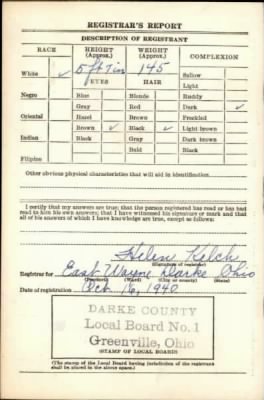 REGISTRAR'S REPORT
DESCRIPTION OF REGISTRANT
RACE HEIGHT (Approx.) WEIGHT (Approx.) COMPLEXION
White ✓ 5 ft 7 in 145 Sallow
EYES HAIR Light
Negro Blue Blonde Ruddy
Gray Red Dark ✓
Oriental Hazel Brown Freckled
Brown ✓ Black ✓ Light brown
Indian Black Gray Dark brown
Bald Black
Filipino
Other obvious physical characteristics that will aid in identification
I certify that my answers are true; that the person registered has read or has
had read to him his own answers; that I have witnessed his signature or mark and that
all of his answers of which I have knowledge are true, except as follows:
Helen Kelch
(Signature of registrar)
Registrar for East Wayne Darke Ohio
(Precinct) (Ward) (City or county) (State)
Date of registration Oct. 16, 1940
DARKE COUNTY
Local Board No. 1
Greenville, Ohio
(STAMP OF LOCAL BOARD)
(The stamp of the Local Board having jurisdiction of the registrant
shall be placed in the above space.)